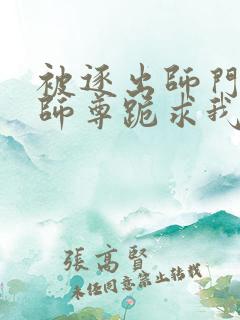 被逐出師門
師尊跪求我
張高賢
未經同意禁止轉載